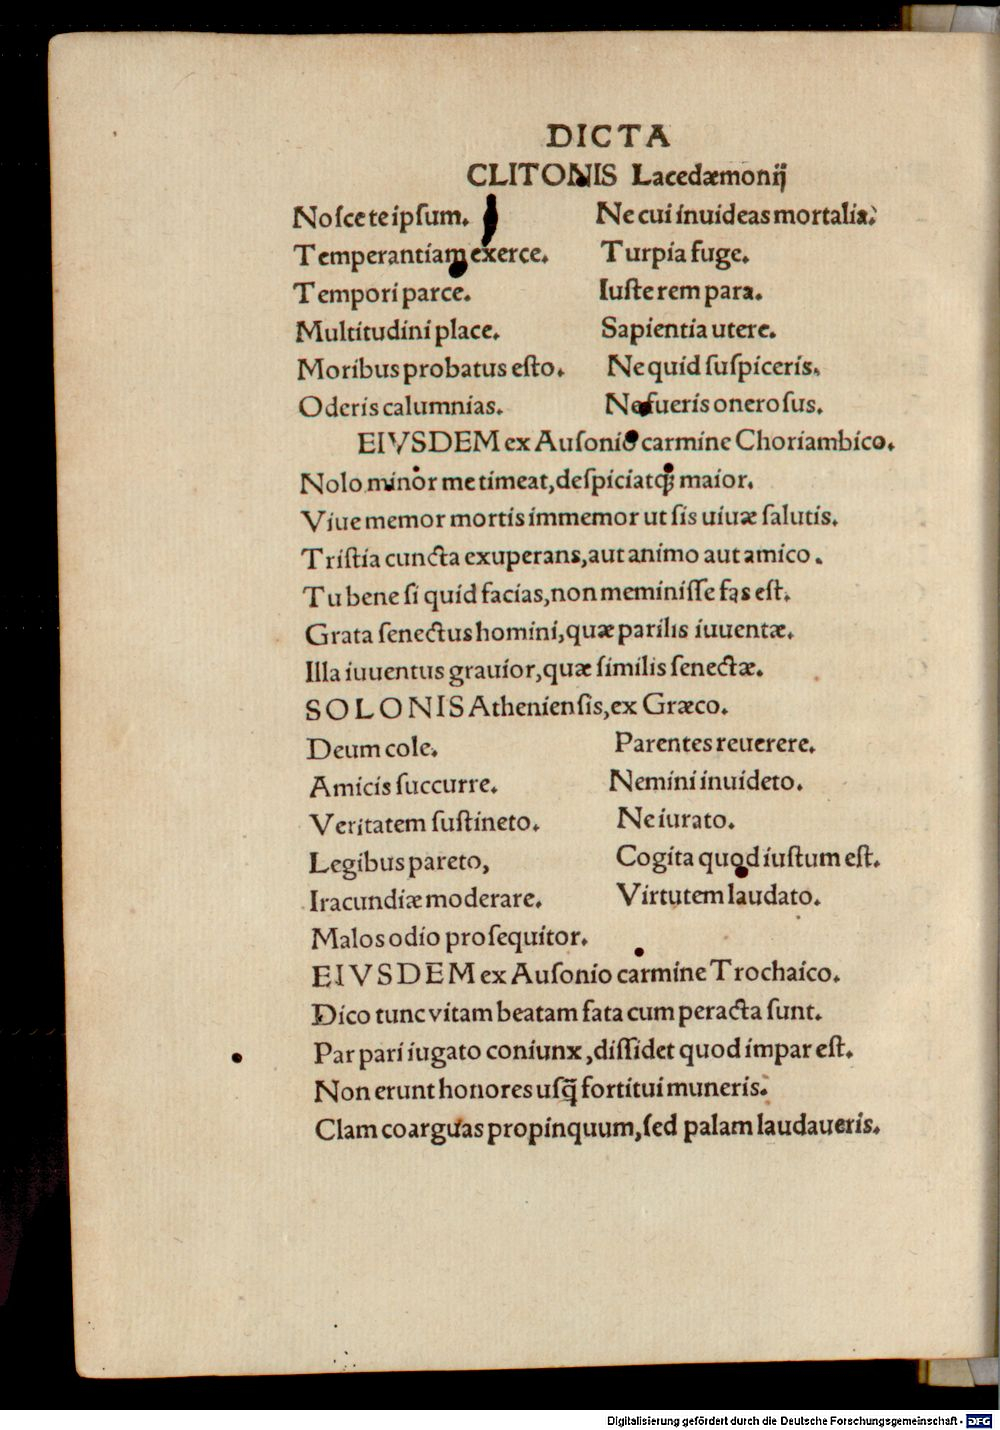 DICTA
CLITONIS Lacedæmonij
Noſce te ipſum. Ne cui inuideas mortaliã.
Temperantiam exerce. Turpia fuge.
Tempori parce. Iuſte rem para.
Multitudini place. Sapientia utere.
Moribus probatus eſto. Ne quid ſuſpiceris.
Oderis calumnias. Ne fueris oneroſus.
EIVSDEM ex Auſonio carmine Choriambico.
Nolo minor me timeat, deſpiciatq; maior.
Viue memor mortis immemor ut ſis uiuæ ſalutis.
Triſtia cuncta exuperans, aut animo aut amico.
Tu bene ſi quid facias, non meminiſſe fas eſt.
Grata ſenectus homini, quæ parilis iuuentæ.
Illa iuuentus grauior, quæ ſimilis ſenectæ.
SOLONIS Athenienſis, ex Græco.
Deum cole. Parentes reuerere.
Amicis ſuccurre. Nemini inuideto.
Veritatem ſuſtineto. Ne iurato.
Legibus pareto, Cogita quod iuſtum eſt.
Iracundiæ moderare. Virtutem laudato.
Malos odio proſequitor.
EIVSDEM ex Auſonio carmine Trochaico.
Dico tunc vitam beatam fata cum peracta ſunt.
Par pari iugato coniunx, diſſidet quod impar eſt.
Non erunt honores uſq̃ fortitui muneris.
Clam coarguas propinquum, ſed palam laudaueris.
Digitalisierung gefördert durch die Deutsche Forschungsgemeinschaft - DFG